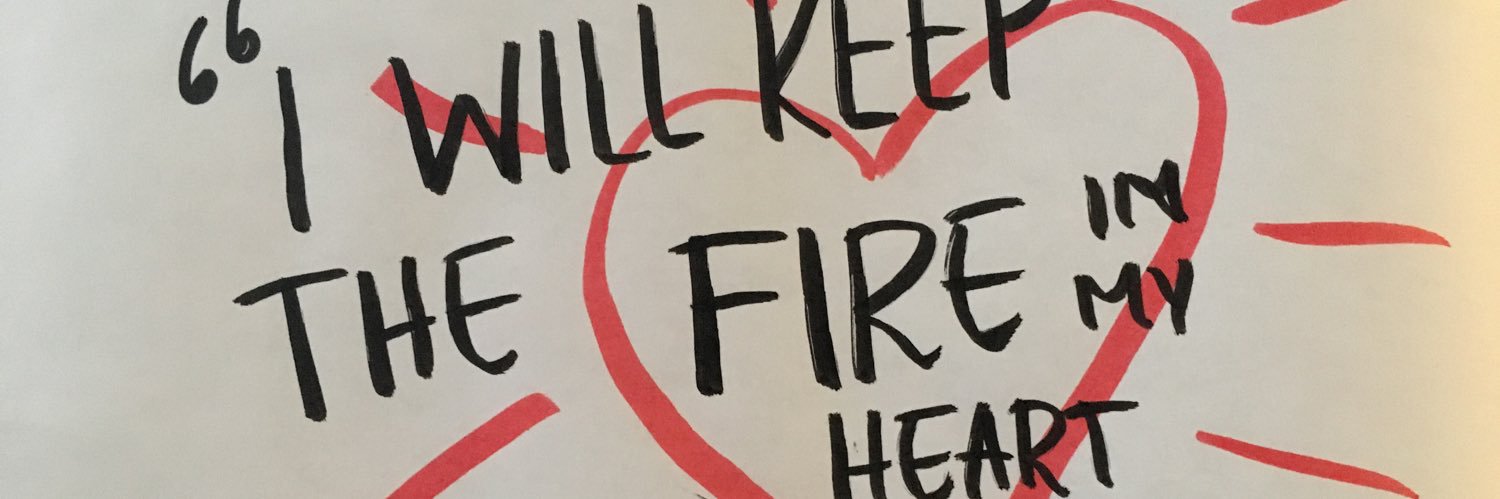 “I WILL KEEP
THE FIRE IN
MY
HEART